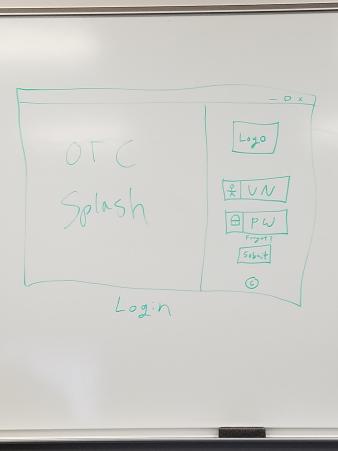 OTC
Splash
Logo
UN
PW
Forgot?
Submit
G
Login